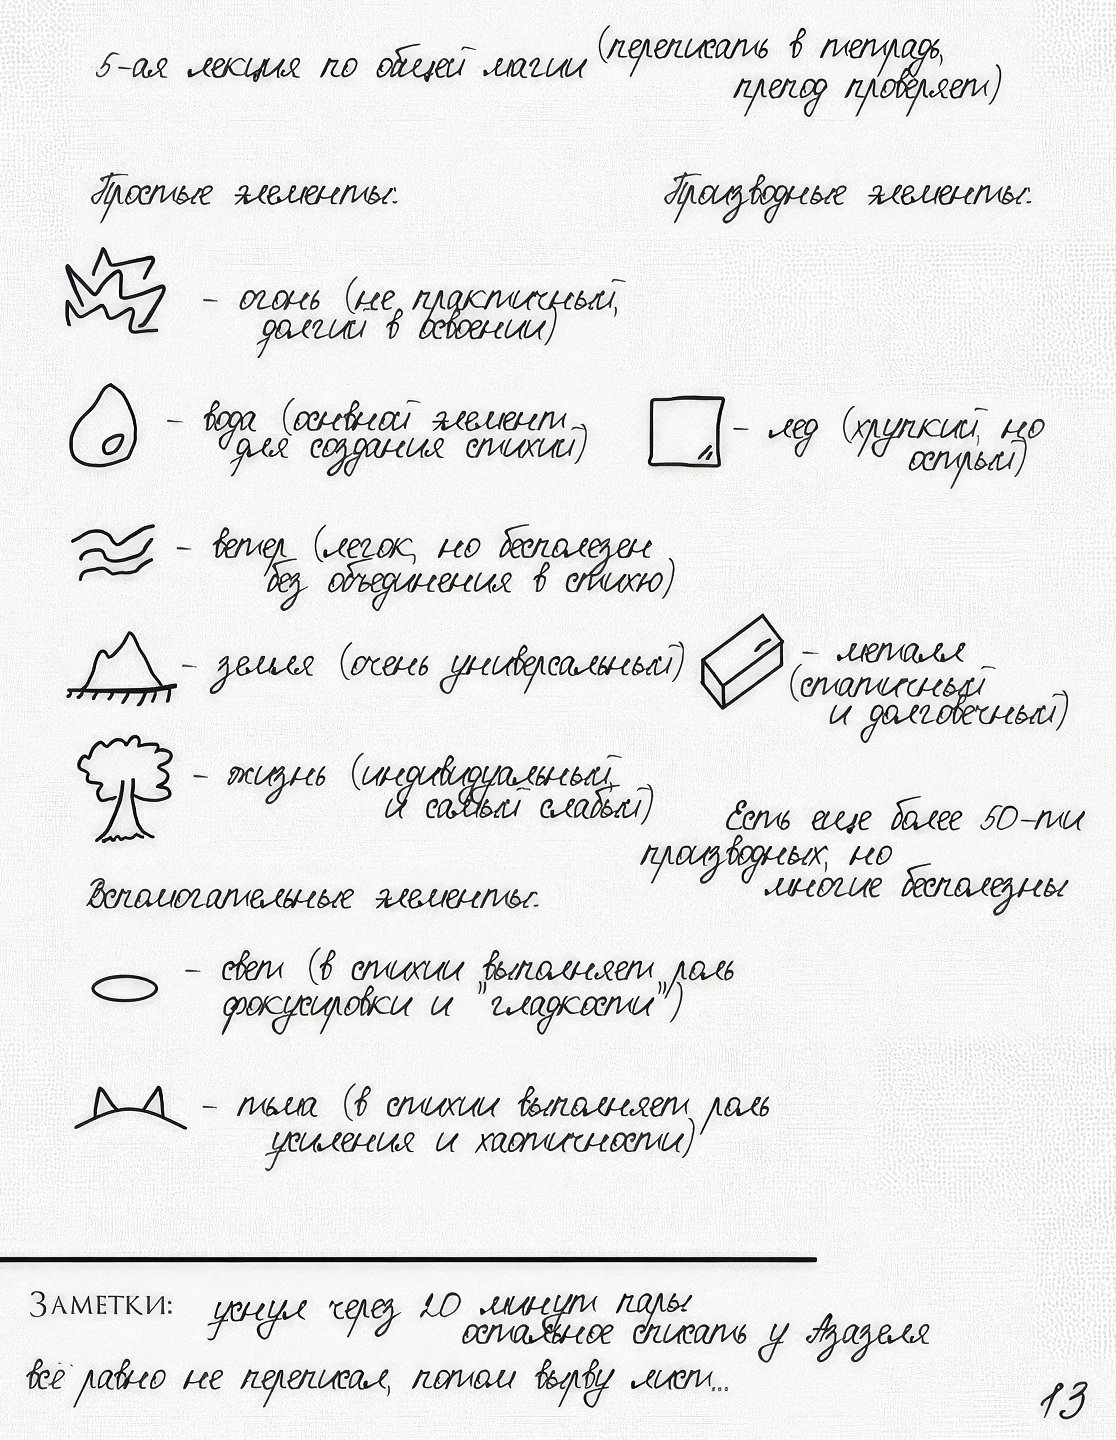 5-ая лекция по общей магии (переписать в тетрадь,
препод проверяет)
Простые элементы:
Производные элементы:
- огонь (не практичный,
долгий в освоении)
- вода (основной элемент
для создания стихий)
- лед (хрупкий, но
острый)
- ветер (легок, но бесполезен
без объединения в стихю)
- земля (очень универсальный)
- металл
(статичный
и долговечный)
- жизнь (индивидуальный
и самый слабый)
Есть еще более 50-ти
производных, но
многие бесполезны
Вспомогательные элементы:
- свет (в стихии выполняет роль
фокусировки и "гладкости")
- тьма (в стихии выполняет роль
усиления и хаотичности)
Заметки: уснул через 20 минут пары
остальное списать у Азазеля
всё равно не переписал, потом вырву лист...
13